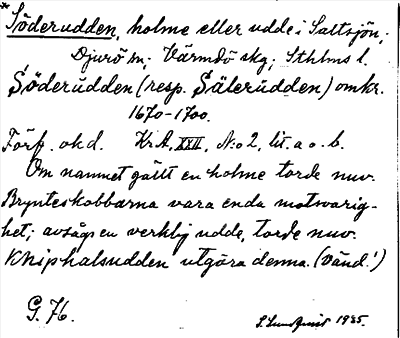 *Söderudden, holme eller udde i Saltsjön,
Djurö sn; Värmdö skg; Sthlms l.
Söderudden (resp. Sälerudden) omkr.
1670-1700.
Förf. okd. Kr.A. XXII, N:o 2, lit. a o. b.
Om namnet gällt en holme torde nuv.
Brynteskobbarna vara enda motsvarig-
het; avsågs en verklig udde, torde nuv.
Kniphalsudden utgöra denna. (Vänd!)
G. 76.
S. Lundqvist 1935.